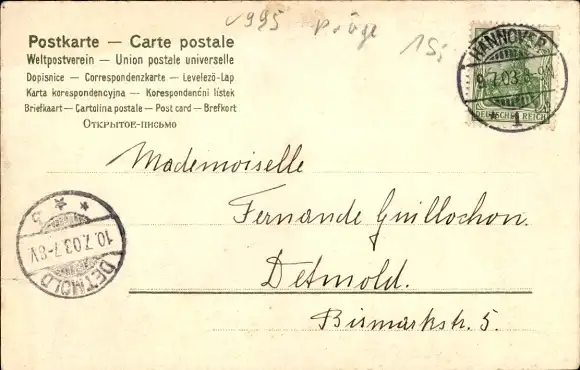 1995 Präge
15,
Postkarte — Carte postale
Weltpostverein — Union postale universelle
Dopisnice — Correspondenzkarte — Levelező-Lap
Karta korespondencyjna — Korespondenční lístek
Briefkaart — Cartolina postale — Post card — Brefkort
Открытое-письмо
HANNOVER
9.7.03.8-9N.
* 1
DEUTSCHES REICH
Mademoiselle
Fernande Guillochon.
Detmold.
Bismarkstr. 5.
10.7.03.7-8V.
DETMOLD